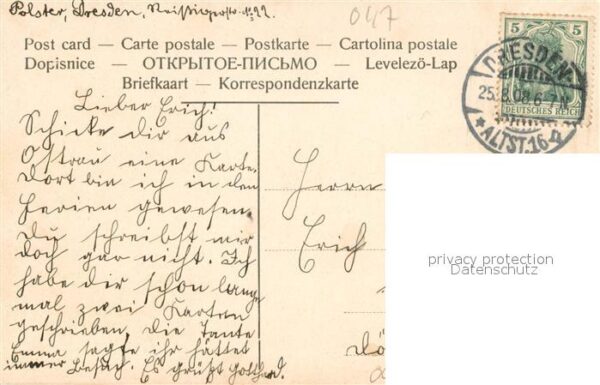 Polster, Dresden, Reissigerstr. No 22.
047
Post card — Carte postale — Postkarte — Cartolina postale
Dopisnice — ОТКРЫТОЕ-ПИСЬМО — Levelező-Lap
Briefkaart — Korrespondenzkarte
5 5
DEUTSCHES REICH
DRESDEN
25.8.08.6-7N
* ALTST.16
Lieber Erich!
Schicke dir aus
Ostrau eine Karte.
Dort bin ich in den
Ferien gewesen.
Du schreibst mir
doch gar nicht. Ich
habe dir schon lange
mal zwei Karten
geschrieben, die Tante
Emma sagte ihr hättet
immer Besuch. Es grüßt Gotthard.
Herrn
Erich
Dö
privacy protection
Datenschutz